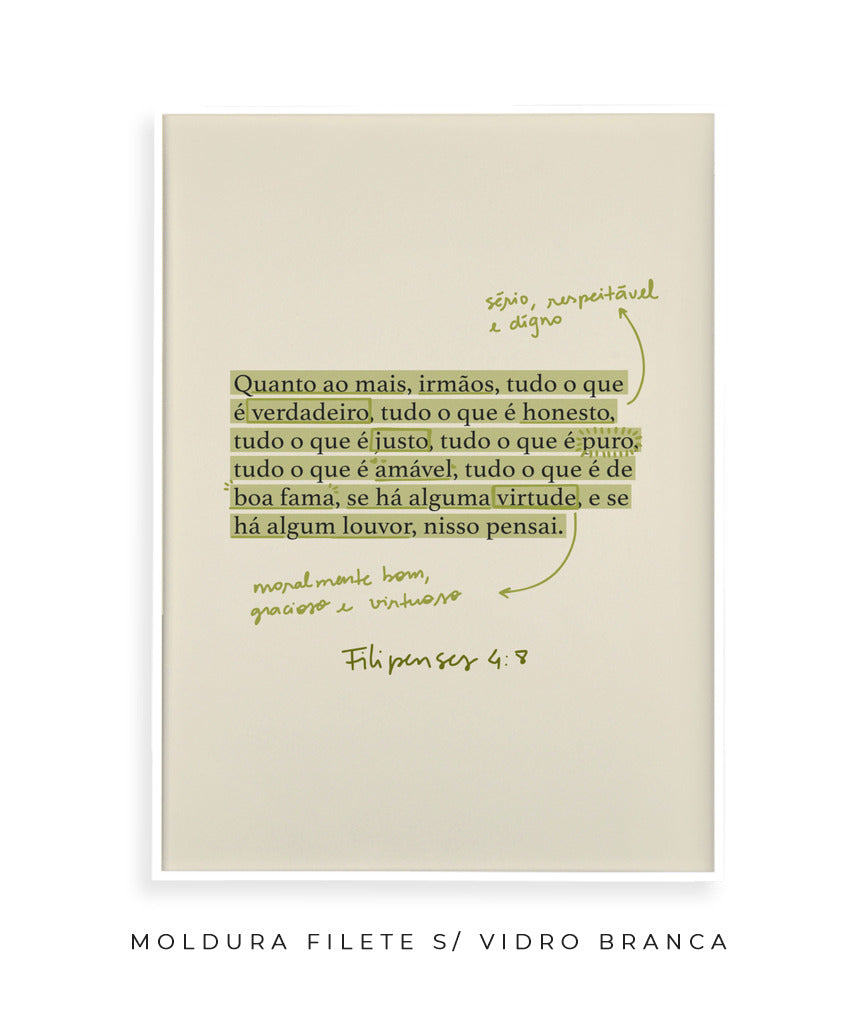 sério, respeitável
e digno
Quanto ao mais, irmãos, tudo o que
é verdadeiro, tudo o que é honesto,
tudo o que é justo, tudo o que é puro,
tudo o que é amável, tudo o que é de
boa fama, se há alguma virtude, e se
há algum louvor, nisso pensai.
moralmente bom,
gracioso e virtuoso
Filipenses 4:8
MOLDURA FILETE S/ VIDRO BRANCA